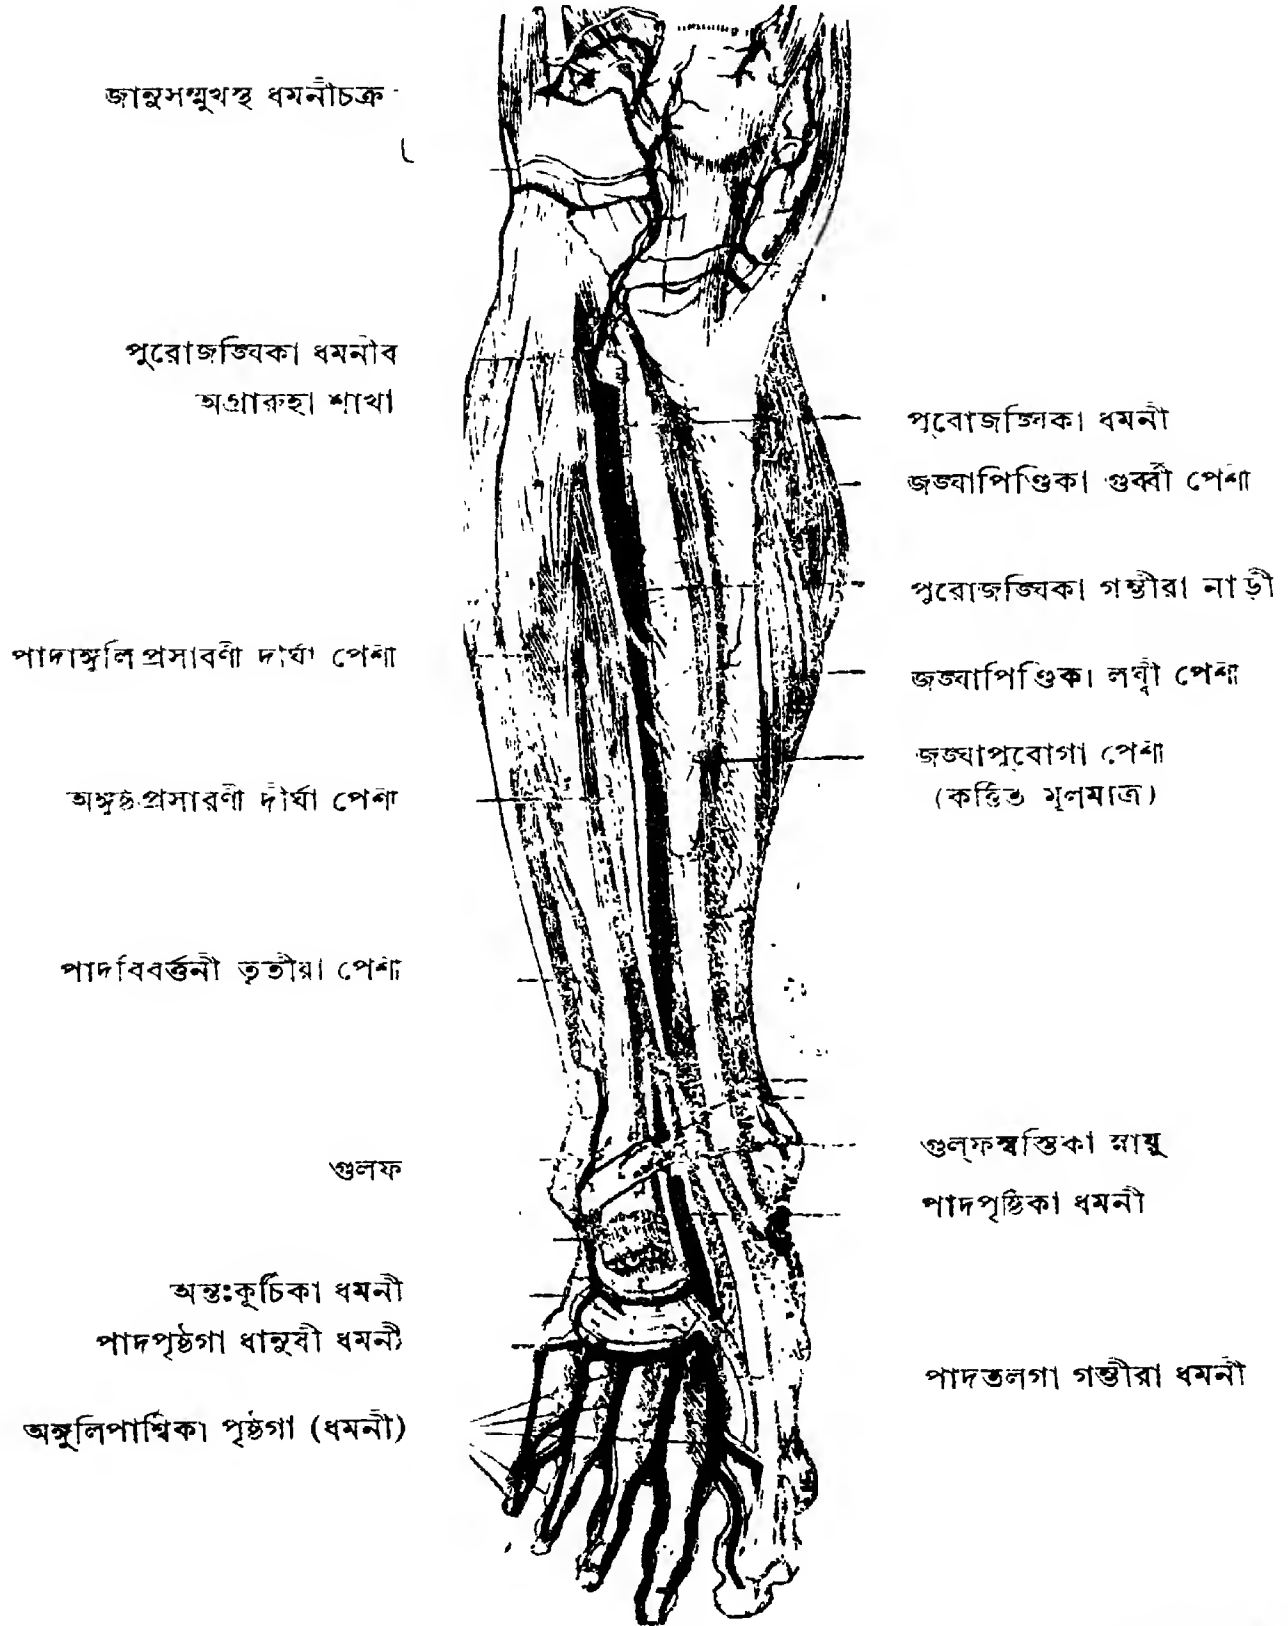 জানুসম্মুখস্থ ধমনীচক্র
পুরোজঙ্ঘিকা ধমনীব
অগ্রারুহা শাখা
পাদাঙ্গুলি প্রসাবণী দীর্ঘা পেশী
অঙ্গুষ্ঠপ্রসারণী দীর্ঘা পেশী
পাদবিবর্ত্তনী তৃতীয়া পেশী
গুলফ
অন্তঃকূর্চিকা ধমনী
পাদপৃষ্ঠগা ধানুষী ধমনী
অঙ্গুলিপার্শ্বিকা পৃষ্ঠগা (ধমনী)
পুবোজঙ্ঘিকা ধমনী
জঙ্ঘাপিণ্ডিকা গুর্ব্বী পেশী
পুরোজঙ্ঘিকা গম্ভীরা নাড়ী
জঙ্ঘাপিণ্ডিকা লঘ্বী পেশী
জঙ্ঘাপুবোগা পেশী
(কর্ত্তিত মূলমাত্র)
গুল্‌ফস্বস্তিকা স্নায়ু
পাদপৃষ্ঠিকা ধমনী
পাদতলগা গম্ভীরা ধমনী